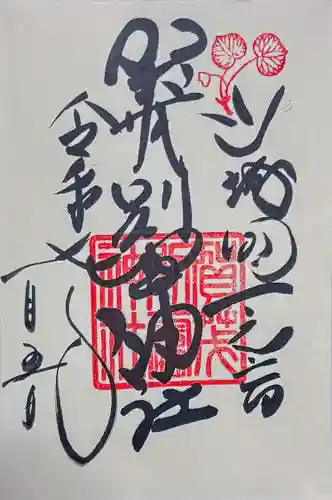 山城国一之宮
賀茂別雷神社
令和七年
一月五日